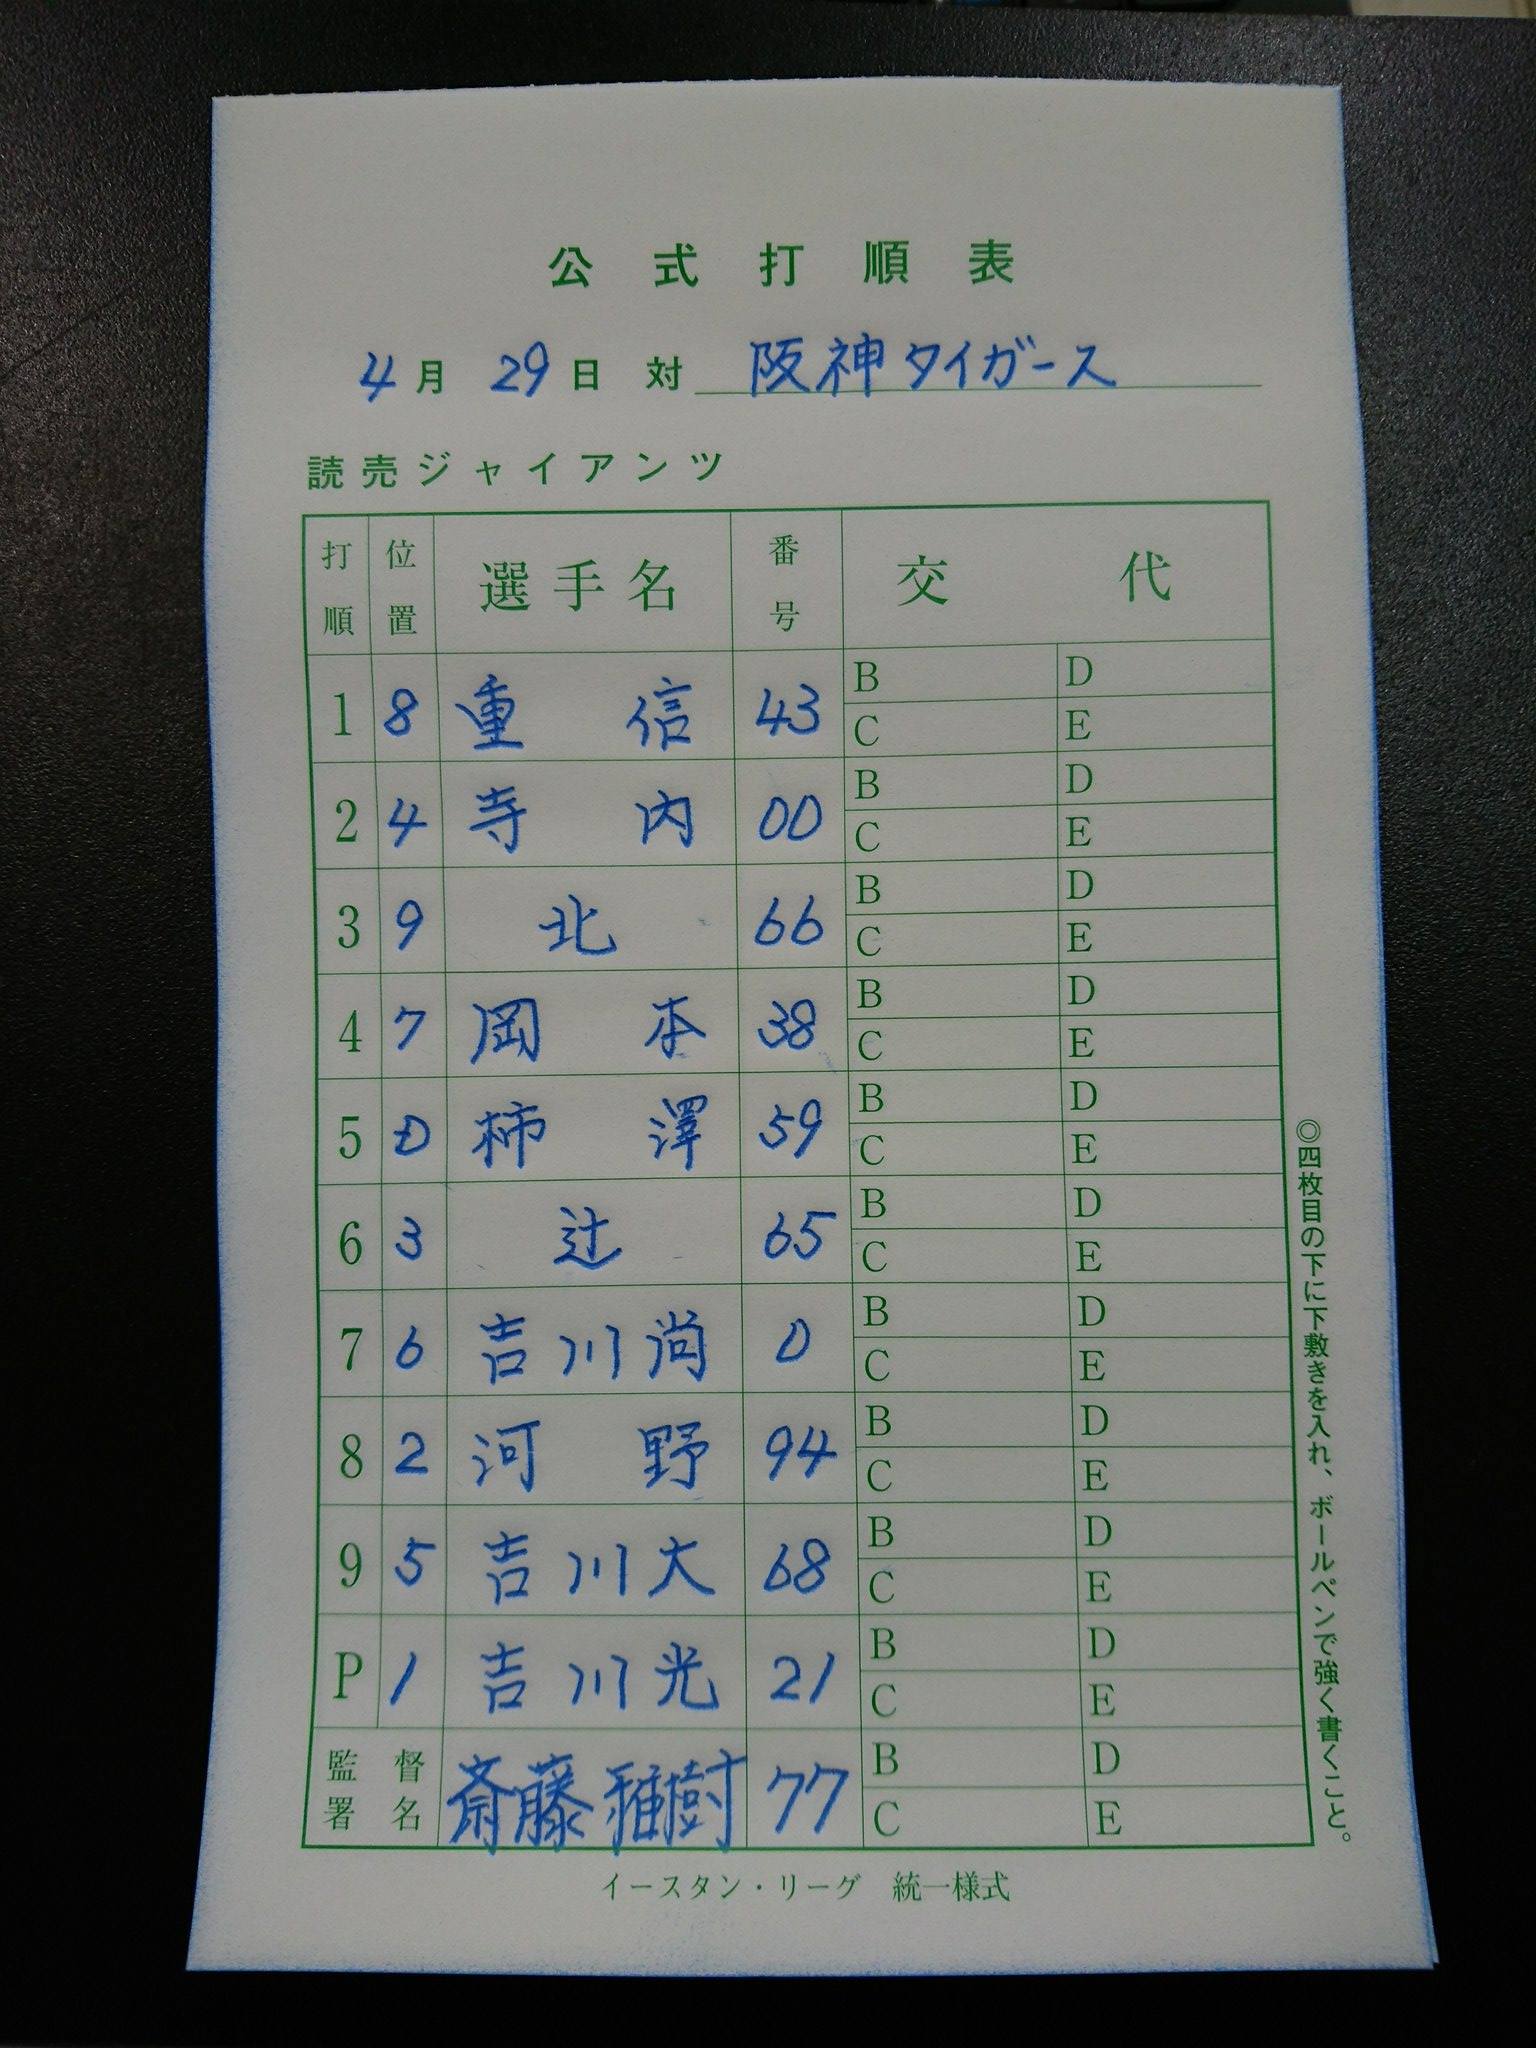 公式打順表
4月 29日 対 阪神タイガース
読売ジャイアンツ
打順 位置 選手名 番号 交代
1 8 重信 43 B D
C E
2 4 寺内 00 B D
C E
3 9 北 66 B D
C E
4 7 岡本 38 B D
C E
5 D 柿澤 59 B D
C E
6 3 辻 65 B D
C E
7 6 吉川尚 0 B D
C E
8 2 河野 94 B D
C E
9 5 吉川大 68 B D
C E
P 1 吉川光 21 B D
C E
監督署名 斎藤雅樹 77 B D
C E
イースタン・リーグ 統一様式
◎四枚目の下に下敷きを入れ、ボールペンで強く書くこと。